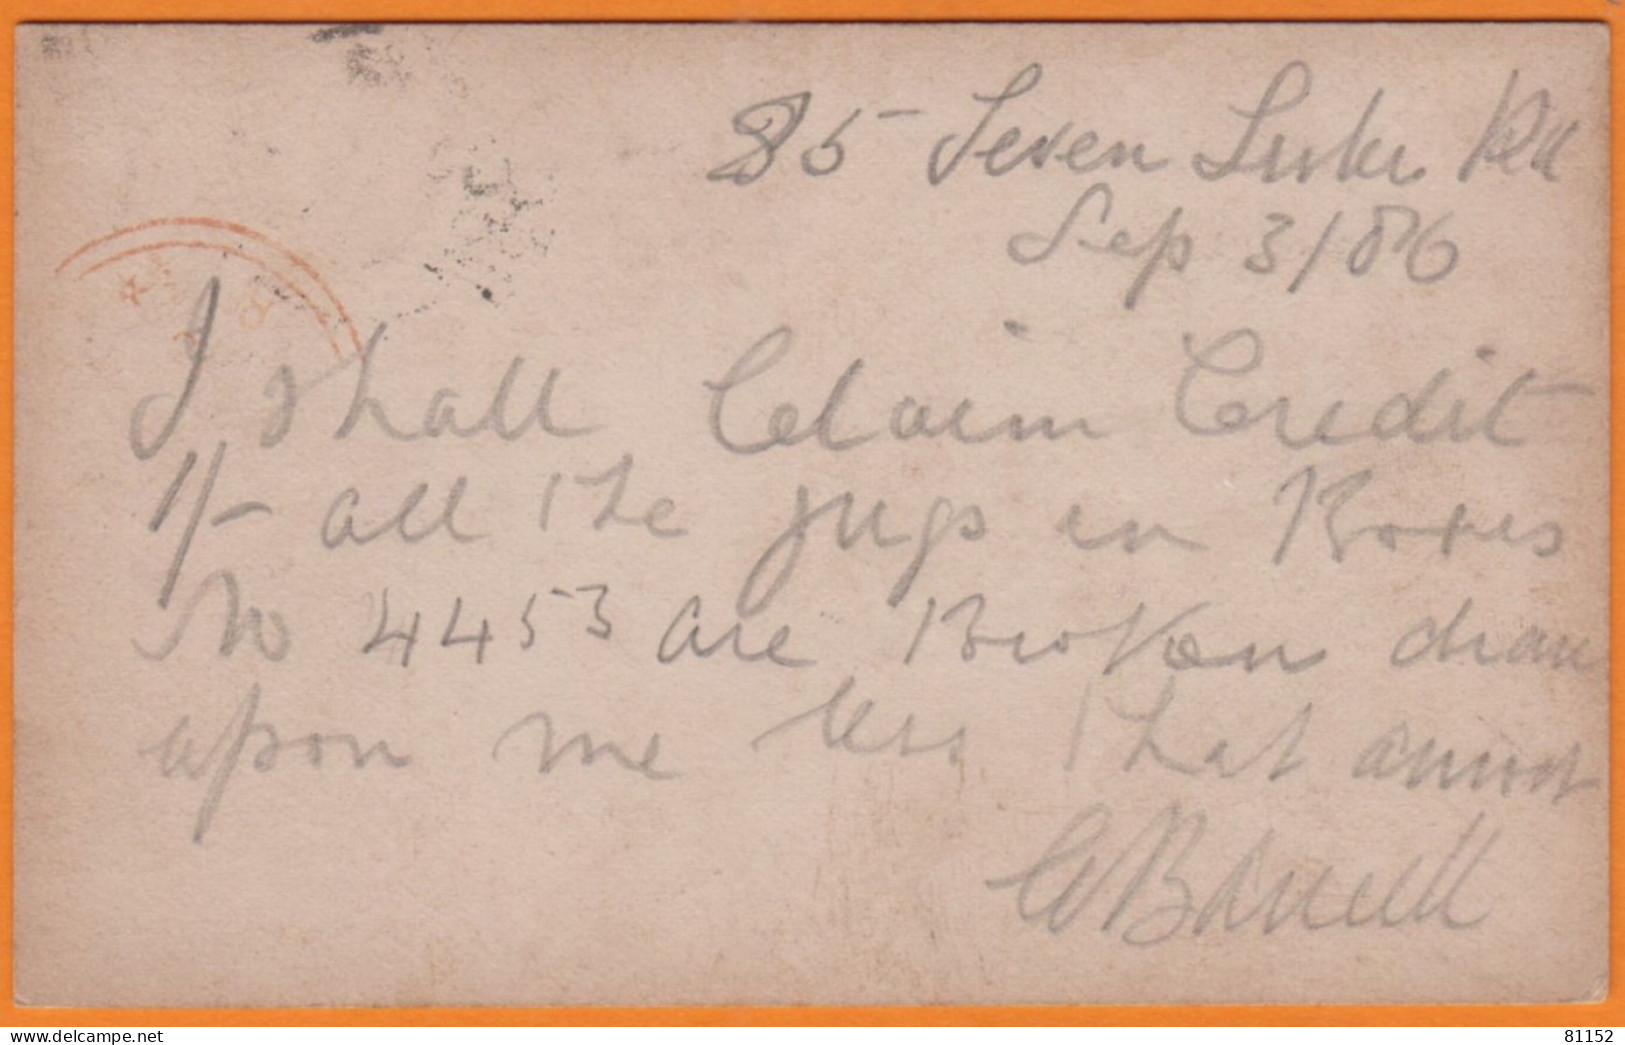 85 Seven Sisters Rd
Sep 3/86
I shall Claim Credit
1/- all the jugs in Boxes
No 4453 are Broken draw
upon me less that amount
W Barrett
81152